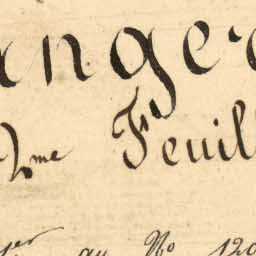 anger
2me Feuil
er au No 120